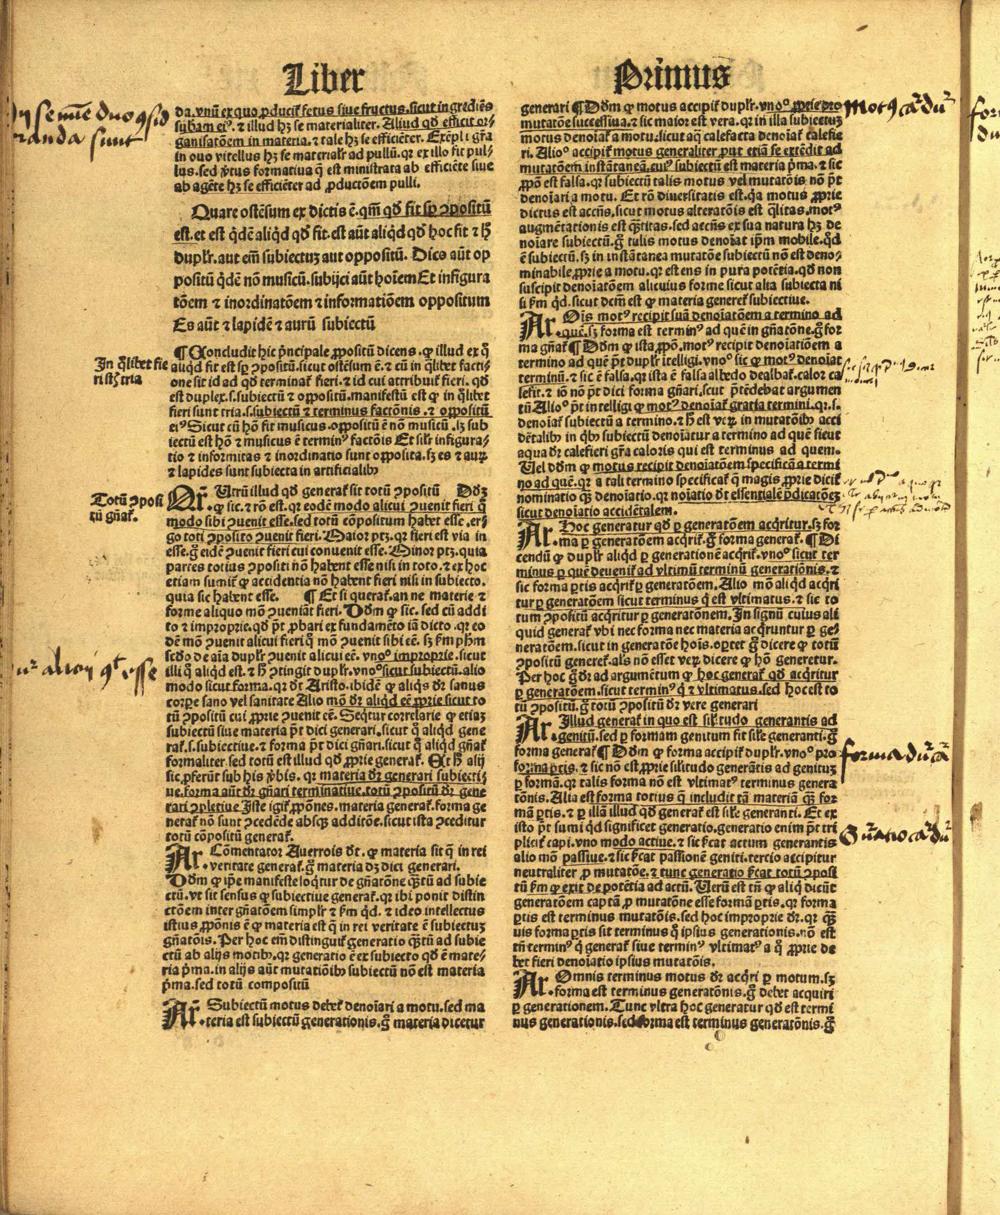 Liber
Primus
da. vnū ex quo ꝓducit͛ fetus siue fructus. sicut ingrediēs
ganisatōem in materia. ⁊ tale hꝫ se efficiēter. Exēpli gr̄a
in ouo vitellus hꝫ se materialr̄ ad pullū. qr ex illo fit pul⸗
lus. sed v̓tus formatiua q̄ est ministrata ab efficiēte siue
ab agēte hꝫ se efficiēter ad ꝓductōem pulli.
Quare ostēsum ex dictis ē. qm̄ qd̄ fit sp̄ ꝯpositū
est. et est qdē aliqd qd̄ fit. est aūt aliqd qd̄ hoc fit ⁊ h̄
duplr̄. aut em̄ subiectuꝫ aut oppositū. Dico aūt op
positū qdē nō musicū. subijci aūt hoīem Et infigura
tōem ⁊ inordinatōem ⁊ informatiōem oppositum
Es aūt ⁊ lapidē ⁊ aurū subiectū
¶ Cōcludit hic pncipale ꝓpositū dicens. ꝙ illud ex q̄
aliqd fit est sp̄ ꝯpositū. sicut ostēsum ē. ⁊ cū in qlibet facti⸗
one sit id ad qd̄ terminat͛ fieri. ⁊ id cui attribuit͛ fieri. qd̄
est duplex. s. subiectū ⁊ oppositū. manifestū est ꝙ in qlibet
fieri sunt tria. s. subiectū ⁊ terminus factōnis. ⁊ oppositū
eiꝰ Sicut cū hō fit musicus. oppositū ē nō musicū. iꝫ sub
iectū est hō ⁊ musicus ē terminꝰ factōis Et silr̄ infigura⸗
tio ⁊ informitas ⁊ inordinatio sunt opposita. sꝫ es ⁊ auꝝ
⁊ lapides sunt subiecta in artificialibꝫ
In qlibet fie
ri sūt tria
Totū ꝯposi
tū gn̄at͛.
Qr̄. Utrū illud qd̄ generat͛ sit totū ꝯpositū Dd̄ꝫ
ꝙ sic. ⁊ rō est. qr eodē modo alicui ꝯuenit fieri q̄
modo sibi ꝯuenit esse. sed totū cōpositum habet esse. er⸗
go toti ꝯposito ꝯuenit fieri. Maior ptꝫ. qr fieri est via in
esse. g̊ eidē ꝯuenit fieri cui conuenit esse. Minor ptꝫ. quia
partes totius ꝯpositi nō habent esse nisi in toto. ⁊ ex hoc
etiam sumit͛ ꝙ accidentia nō habent fieri nisi in subiecto.
quia sic habent esse. ¶ Et si querat͛. an ne materie ⁊
forme aliquo mō ꝯueniāt fieri. Dd̄m ꝙ sic. sed cū addi
to ⁊ improprie. qd̄ pt̄ ꝓbari ex fundamēto iā dicto. qr eo
dē mō ꝯuenit alicui fieri q̄ mō ꝯuenit sibi eē. sꝫ fm̄ ph̄m
scd̄o de aīa duplr̄ ꝯuenit alicui eē. vnoº improprie. sicut
illi q̄ aliqd est. ⁊ h̄ ꝯtingit duplr̄. vnoº sicut subiectū. alio
modo sicut forma. qr dt̄ Aristo. ibidē ꝙ aliqs dr̄ sanus
corpe sano vel sanitate Alio mō dr̄ aliqd eē ꝓprie sicut to
tū ꝯpositū cui ꝓprie ꝯuenit eē. Seqtur correlarie ꝙ etiaꝫ
subiectū siue materia pt̄ dici generari. sicut q̄ aliqd gene
rat͛. s. subiectiue. ⁊ forma pt̄ dici gn̄ari. sicut q̄ aliqd gn̄at͛
formaliter. sed totū est illud qd̄ ꝓprie generat͛. Et h̄ alij
sic ꝓferūt sub his v̓bis. ꝙ materia dr̄ generari subiecti⸗
ue. forma aūt dr̄ gn̄ari terminatiue. totū ꝯpositū dr̄ gene
rari ꝯpletiue Iste igit͛ ꝓpōnes. materia generat͛. forma ge
nerat͛ nō sunt ꝯcedēde absqꝫ additōe. sicut ista ꝯceditur
totū cōpositū generat͛.
Ar. Cōmentator Auerrois dt̄. ꝙ materia sit q̄ in rei
veritate generat͛. g̊ materia dꝫ dici generari.
Dd̄m ꝙ ip̄e manifeste loqtur de gn̄atōne q̄stū ad subie
ctū. vt sit sensus ꝙ subiectiue generat͛. qr ibi ponit distin
ctōem inter gn̄atōem simplr̄ ⁊ fm̄ qd. ⁊ ideo intellectus
istius ꝓpōnis ē ꝙ materia est q̄ in rei veritate ē subiectuꝫ
gn̄atōis. Per hoc em̄ distinguit͛ generatio q̄stū ad subie
ctū ab alijs motibꝫ. qr generatio ē ex subiecto qd̄ ē mate⸗
ria pma. in alijs aūt mutatiōibꝫ subiectū nō est materia
pma. sed totū compositū
Ar. Subiectū motus debet denoīari a motu. sed ma
teria est subiectū generationis. g̊ materia dicetur
generari ¶ Dd̄m ꝙ motus accipit͛ duplr̄. vnoº ꝓprie pro
mutatōe successiua. ⁊ sic maior est vera. qr in illa subiectuꝫ
motus denoīat͛ a motu. sicut aq̄ calefacta denoīat͛ calefie
ri. Alioº accipit͛ motus generaliter put etiā se extēdit ad
mutatōem instātaneā. cuiꝰ subiectū est materia pma. ⁊ sic
ꝓpō est falsa. qr subiectū talis motus vel mutatōis nō pt̄
denoīari a motu. Et rō diuersitatis est. qa motus ꝓprie
dictus est accn̄s. sicut motus alteratōis est qlitas. motꝰ
augmētationis est q̄titas. sed accn̄s ex sua natura hꝫ de
noīare subiectū. g̊ talis motus denoīat ipm̄ mobile. qd̄
ē subiectū. sꝫ in instātanea mutatōe subiectū nō est deno⸗
minabile ꝓprie a motu. qr est ens in pura potētia. qd̄ non
suscipit denoīatōem alicuius forme sicut alia subiecta ni
si fm̄ qd. sicut dcm̄ est ꝙ materia generet͛ subiectiue.
Ar. Ois motꝰ recipit suā denoīatōem a termino ad
quē. sꝫ forma est terminꝰ ad quē in gn̄atōne. g̊ for
ma gn̄at͛ ¶ Dd̄m ꝙ ista ꝓpō. motꝰ recipit denoīatiōem a
termino ad quē pt̄ duplr̄ itelligi. vnoº sic ꝙ motꝰ denoīat
terminū. ⁊ sic ē falsa. qr ista ē falsa albedo dealbat͛. calor ca
lefit. ⁊ iō nō pt̄ dici forma gn̄ari. sicut ptēdebat argumen
tū Alioº pt̄ intelligi ꝙ motꝰ denoīat͛ gratia termini. qr. s.
denoīat͛ subiectū a termino. ⁊ h̄ est veꝝ in mutatōibꝫ acci
dētalibꝫ in qbꝫ subiectū denoīatur a termino ad quē sicut
aqua dr̄ calefieri gr̄a caloris qui est terminus ad quem.
Uel dd̄m ꝙ motus recipit denoīatōem specificā a termi
no ad quē. qr a tali termino specificat͛ q̄ magis ꝓprie dicit͛
nominatio q̄ denoīatio. qr noīatio dt̄ essentialē pdicatōeꝫ
sicut denoīatio accidētalem.
Ar. Hoc generatur qd̄ p generatōem acqritur. sꝫ for
ma p generatōem acqrit͛. g̊ forma generat͛. ¶ Di
cendū ꝙ duplr̄ aliqd p generationē acqrit͛. vnoº sicut ter
minus p quē deuenit͛ ad vltimū terminū generatiōnis. ⁊
sic forma ptis acqrit͛ p generatōem. Alio mō aliqd acqri
tur p generatōem sicut terminus q̄ est vltimatus. ⁊ sic to
tum ꝯpositū acqritur p generatōnem. In signū cuius ali
quid generat͛ vbi nec forma nec materia acqruntur p ge⸗
neratōem. sicut in generatōe hoīs. oꝑtet g̊ dicere ꝙ totū
ꝯpositū generet͛. als nō esset veꝝ dicere ꝙ hō generetur.
Per hoc g̊ dr̄ ad argumentum ꝙ hoc generat͛ qd̄ acqritur
p generatōem. sicut terminꝰ q̄ ⁊ vltimatus. sed hoc est to
tū ꝯpositū. g̊ totū ꝯpositū dr̄ vere generari
Ar. Illud generat͛ in quo est silitudo generantis ad
genitū. sed p formam genitum fit sile generanti. g̊
forma generat͛ ¶ Dd̄m ꝙ forma accipit͛ duplr̄. vnoº pro
forma ptis. ⁊ sic nō est ꝓprie silitudo generātis ad genituꝫ
p formā. qr talis forma nō est vltimatꝰ terminus genera
tōnis. Alia est forma totius q̄ includit tā materiā q̄ for
mā ptis. ⁊ p illā illud qd̄ generat͛ est sile generanti. Et ex
isto pt̄ sumi qd significet generatio. generatio enim pt̄ tri
plicit͛ capi. vno modo actiue. ⁊ sic ſicat actum generantis
alio mō passiue. ⁊ sic ſicat passionē geniti. tercio accipitur
neutraliter ꝓ mutatōe. ⁊ tunc generatio ſicat totū ꝯposi
tū fm̄ ꝙ exit de potētia ad actū. Uerū est tn̄ ꝙ aliq dicūt
generatōem captā ꝓ mutatōne esse formā ptis. qr forma
ptis est terminus mutatōis. sed hoc improprie dr̄. qr q̄ꝫ
uis forma ptis sit terminus q̄ ipsius generationis. nō est
tn̄ terminꝰ q̄ generat͛ siue terminꝰ vltimatꝰ a q̄ ꝓprie de
bet fieri denoīatio ipsius mutatōis.
Ar. Omnis terminus motus dr̄ acqri p motum. sꝫ
forma est terminus generatōnis. g̊ debet acquiri
p generationem. Tunc vltra hoc generatur qd̄ est termi
nus generationis. sed forma est terminus generatōnis. g̊